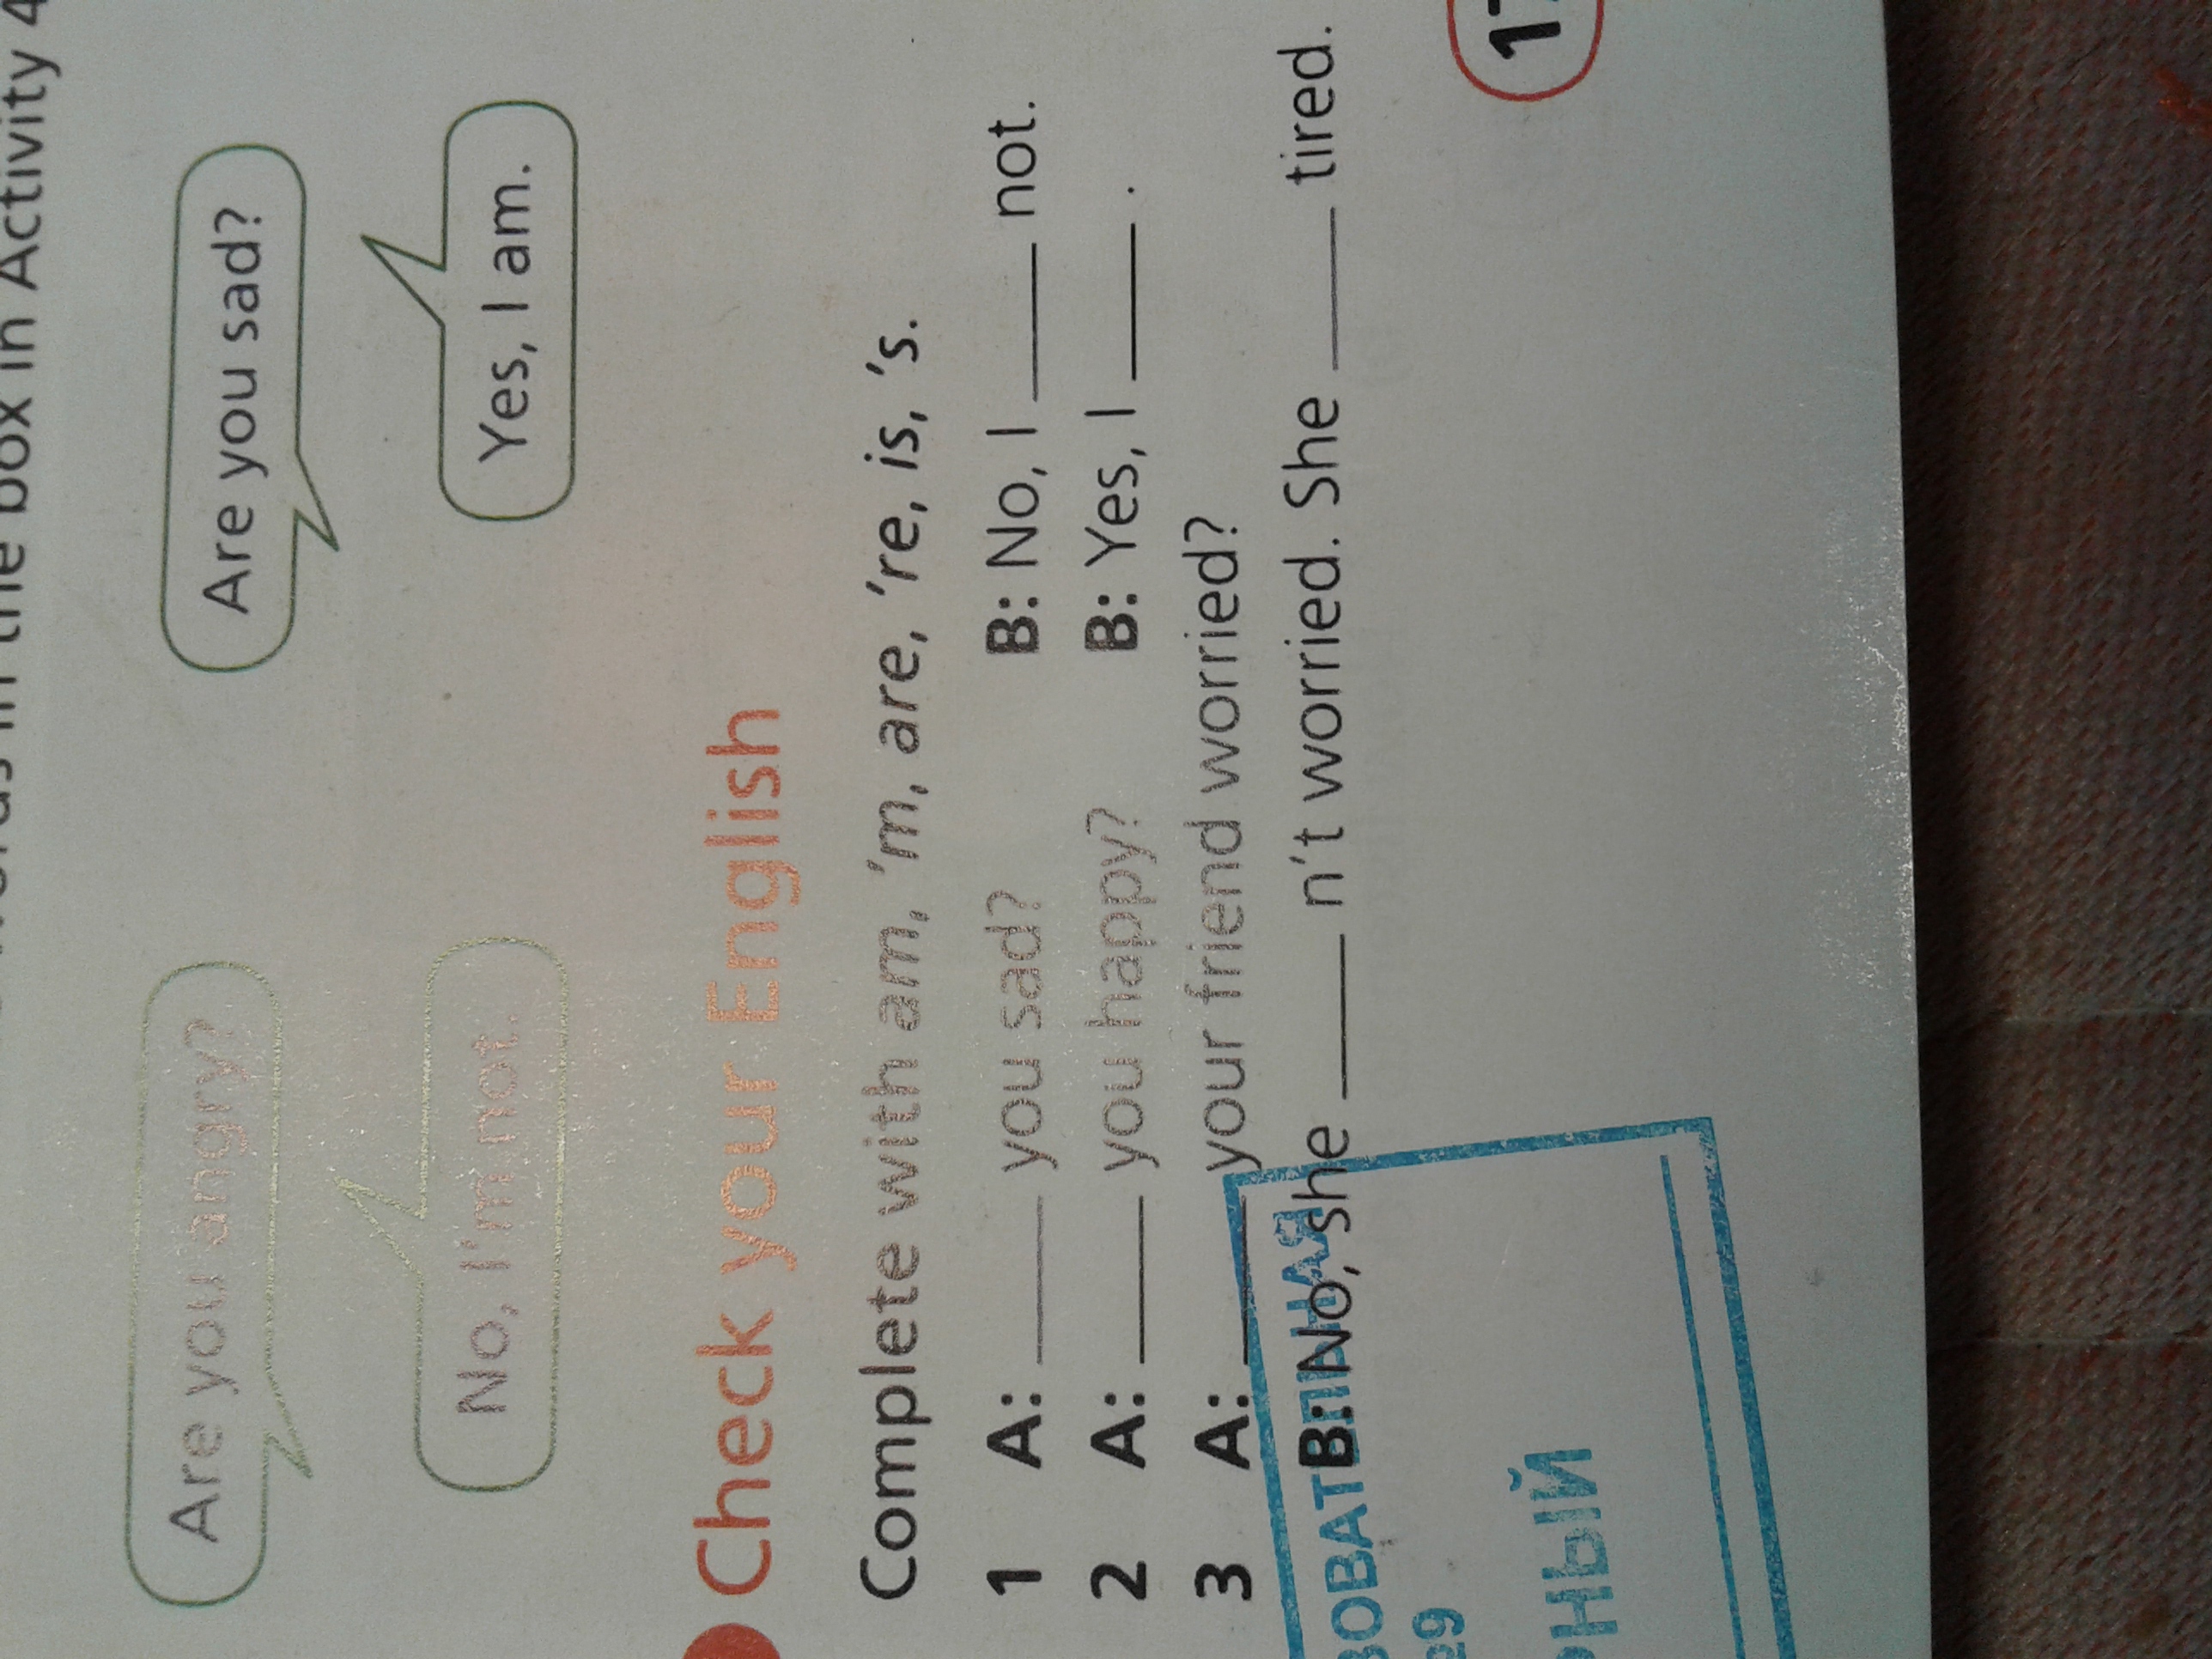 box in Activity 4
Are you angry?
Are you sad?
No, I'm not.
Yes, I am.
Check your English
Complete with am, 'm, are, 're, is, 's.
1 A: ____ you sad? B: No, I ____ not.
2 A: ____ you happy? B: Yes, I ____ .
3 A: ____ your friend worried?
B: No, she ____ n't worried. She ____ tired.